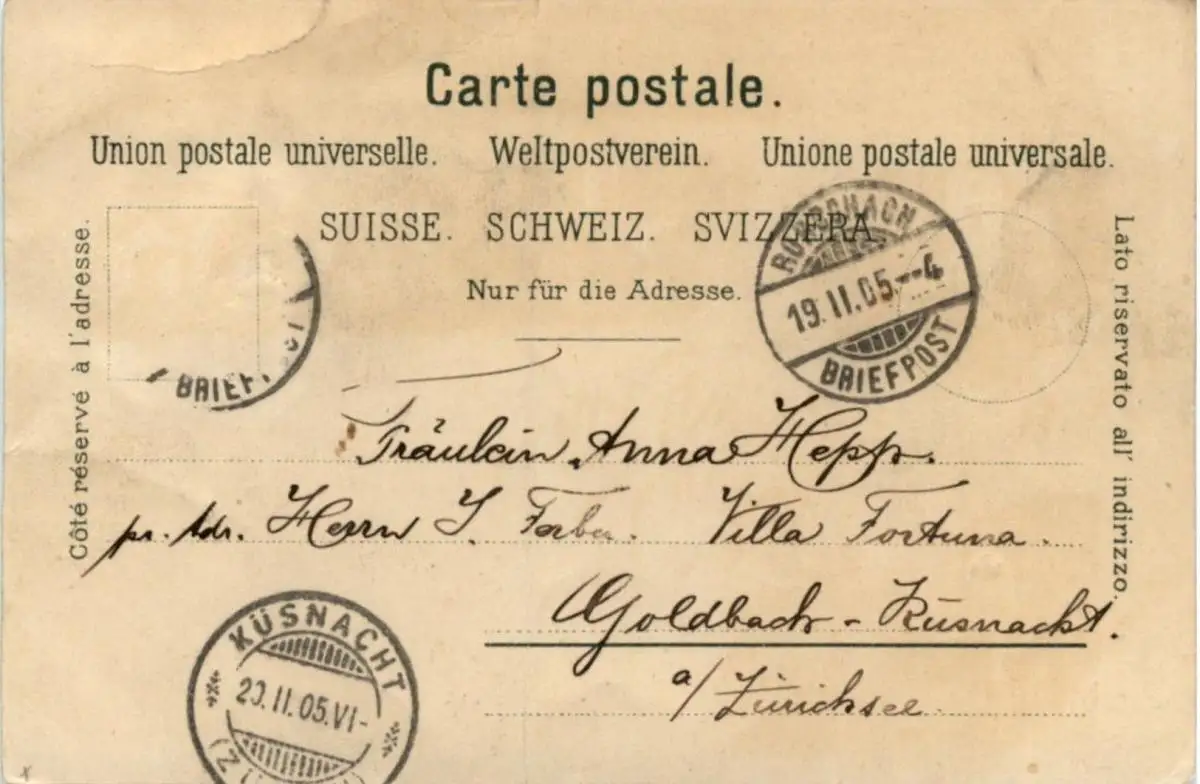 Carte postale.
Union postale universelle. Weltpostverein. Unione postale universale.
SUISSE. SCHWEIZ. SVIZZERA.
Nur für die Adresse.
Côté réservé à l'adresse.
Lato riservato all' indirizzo.
BRIEFPOST
RORSCHACH
19.II.05.--4
BRIEFPOST
Fräulein Anna Hepp.
pr. Adr. Herrn J. Villa Fortuna.
Goldbach - Küsnacht.
a/ Zürichsee
KÜSNACHT
20.II.05.VI-